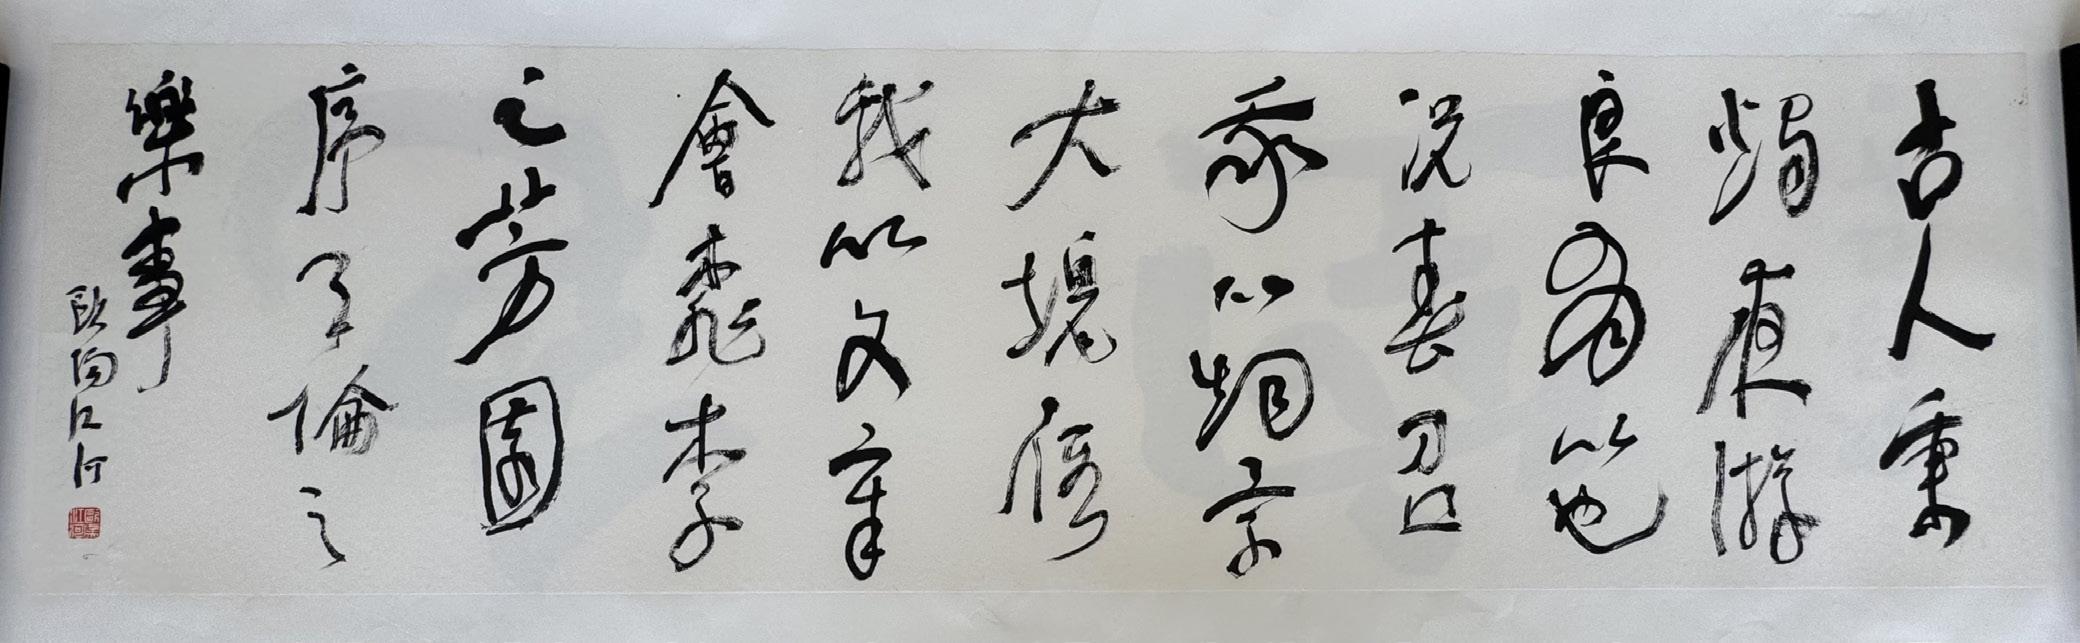 古人秉
燭夜游
良有以也
況春召
我以烟景
大塊假
我以文章
會桃李
之芳園
序天倫之
樂事
歐陽江河